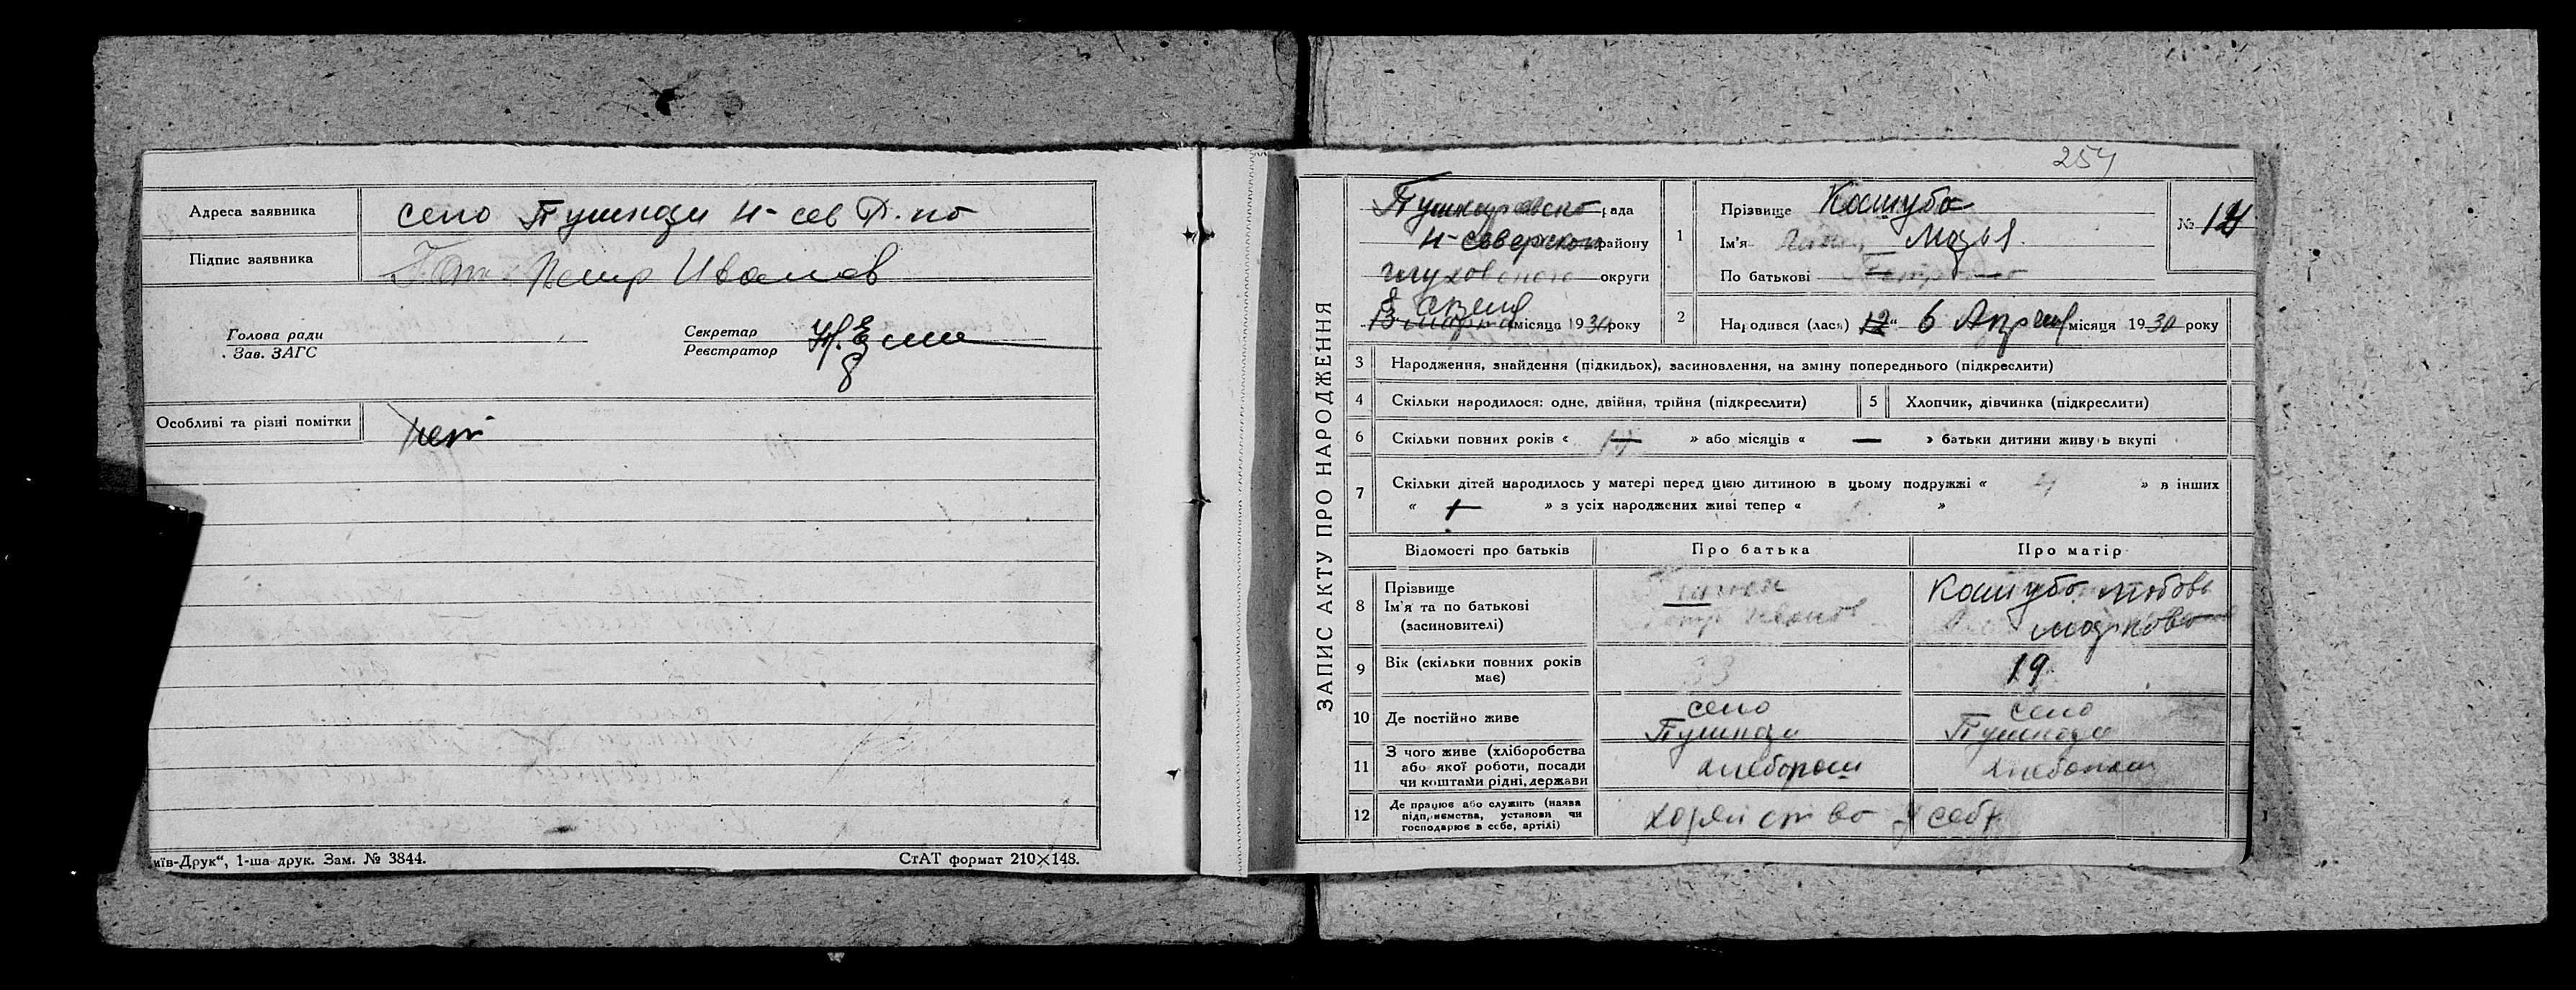 Адреса заявника
село Пушкари Н-сев
Підпис заявника
Петр Иванов
Голова ради
Зав. ЗАГС
Секретар
Реєстратор
Особливі та різні помітки
нет
иїв-Друк“, 1-ша друк. Зам. № 3844.
СтАТ формат 210×148.
254
ЗАПИС АКТУ ПРО НАРОДЖЕННЯ
рада
Н-северского району
глуховского округи
місяця 1930 року
1
Прізвище Кошуба
Ім'я
По батькові
№
2
Народився (лась) 12 “ 6 Апреля місяця 1930 року
3 Народження, знайдення (підкидьох), засиновлення, на зміну попереднього (підкреслити)
4 Скільки народилося: одне, двійня, трійня (підкреслити)
5 Хлопчик, дівчинка (підкреслити)
6 Скільки повних років « — » або місяців « — » батьки дитини живуь вкупі
7 Скільки дітей народилось у матері перед цією дитиною в цьому подружжі « » в інших
« » з усіх народжених живі тепер « »
Відомості про батьків
Про батька
Про матір
8 Прізвище
Ім'я та по батькові
(засновителі)
Петр Иванов
Кошуба Любовь
Марковна
9 Вік (скільки повних років
має)
33
19
10 Де постійно живе
село
Пушкари
село
Пушкари
11 З чого живе (хліборобства
або якої роботи, посади
чи коштами рідні, держави
хлебопаш
хлебопаш
12 Де працює або служить (назва
підприємства, установи чи
господарює в себе, артілі)
хозяйство у себя